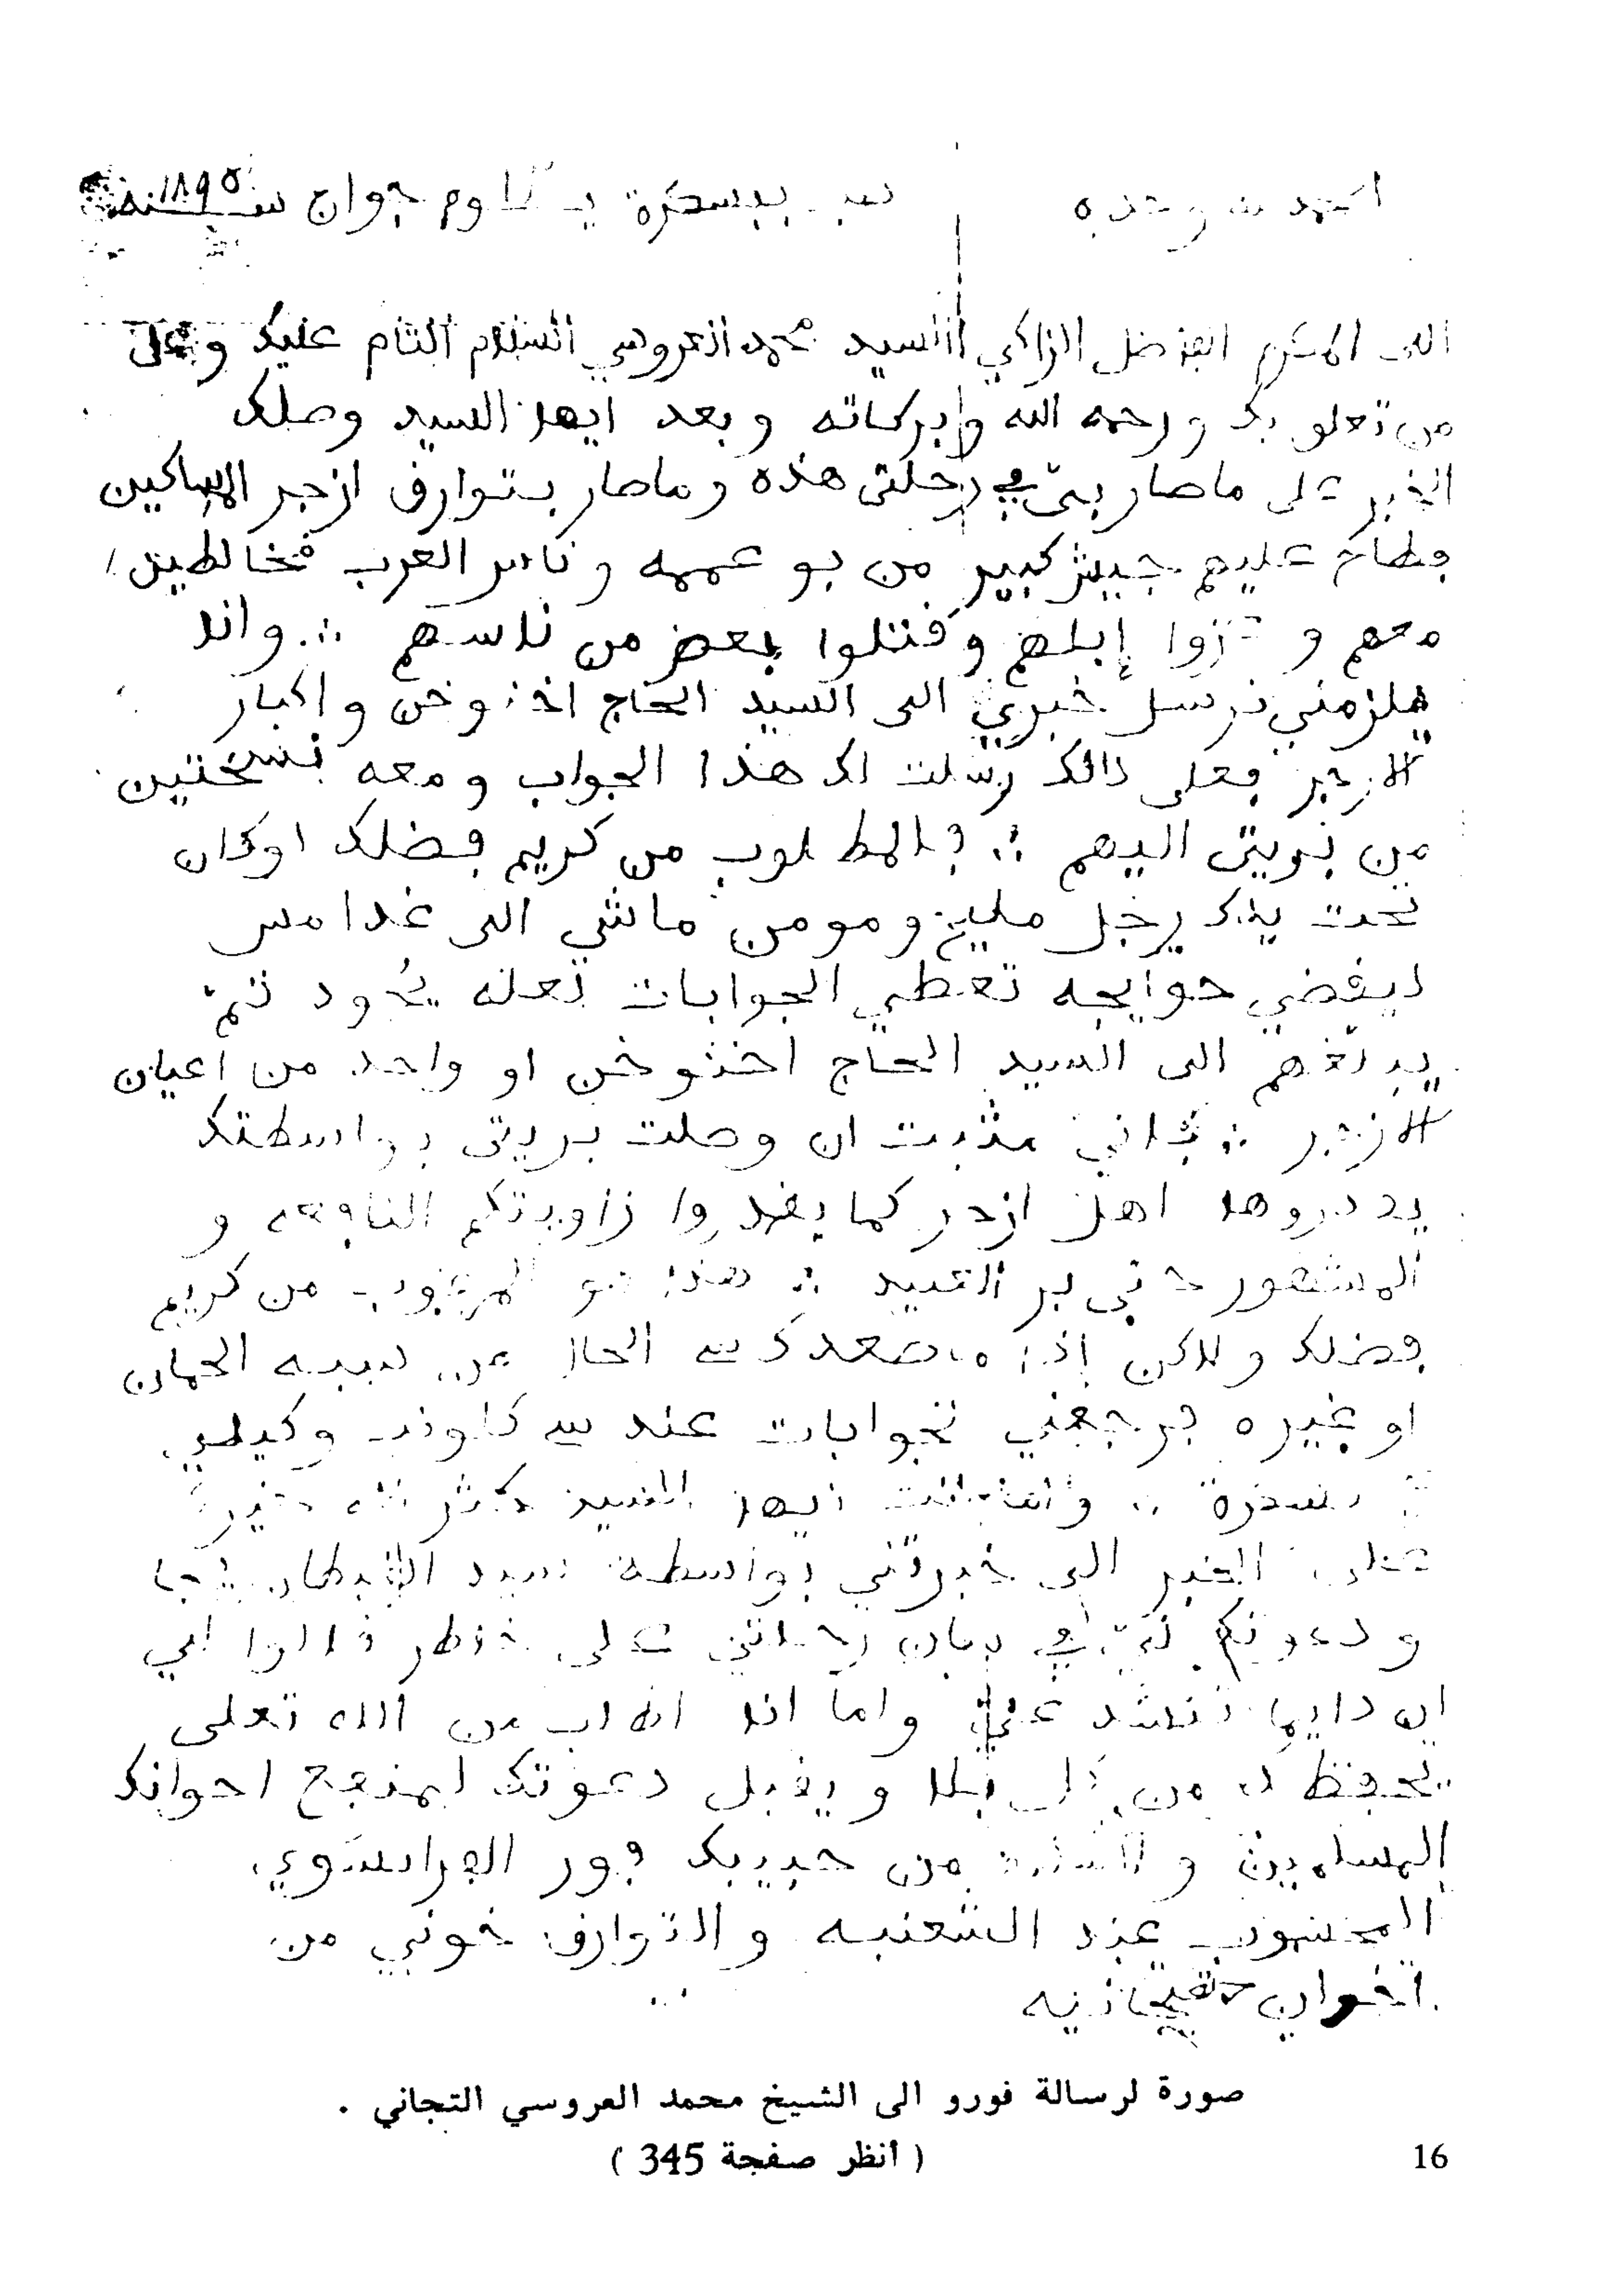 الحمد لله وحده ببسكرة يوم جوان سنة ١٨٩٥
الى المكرم الفاضل الزاكي السيد محمد العروسي السلام التام عليك وعلى
من تعلق بك ورحمه الله وبركاته وبعد ايها السيد وصلك
الخبر على ما صار بيّ في رحلتى هذه وما صار بتوارق ازجر المساكين
فطاح عليهم جيش كبير من بو عممه وناس العرب مخالطين
معهم و إبلهم وقتلوا بعض من ناسهم ؞ وانا
يلزمني نرسل خبري الى السيد الحاج اخنوخن واكبار
الازجر فعلى ذالك رسلت لك هذا الجواب ومعه نسختين
من بريتى اليهم ؞ فالمطلوب من كريم فضلك اوكان
تحت يدك رجل مليح ومومن ماشي الى غدامس
ليقضي حوايجه تعطي الجوابات لعله يعود ثمّ
يبلغهم الى السيد الحاج اخنوخن او واحد من اعيان
الازجر ؞ فاني مثبت ان وصلت بريتى بواسطتك
يقدروها اهل ازجر كما يقدروا زاويتكم النافعه و
المشهور حتى بر العبيد ؞ هذا هو المرغوب من كريم
فضلك ولاكن إذا ما صعدك سي الحال من سببه الحمان
او غيره فرجعني نجوابات عند سي وكيلي
بسكرة ؞ وانت ايها السيد كثر الله خيرك
على الخبر الى خبرتني بواسطة سيد
ودعوتكم في رحلتي على خاطر قالوا لي
ان دايما تنشد عليّ واما انا اطلب من الله تعلى
يحفظك من كل بلا ويقبل دعوتك لمنفع اخوانك
المسلمين والسلام من حبيبك فور الفرانسوي
المحسوب عند الشعنبه والتوارق خوني من
اخوان التجانيه
صورة لرسالة فورو الى الشيخ محمد العروسي التجاني .
( أنظر صفحة 345 )
16